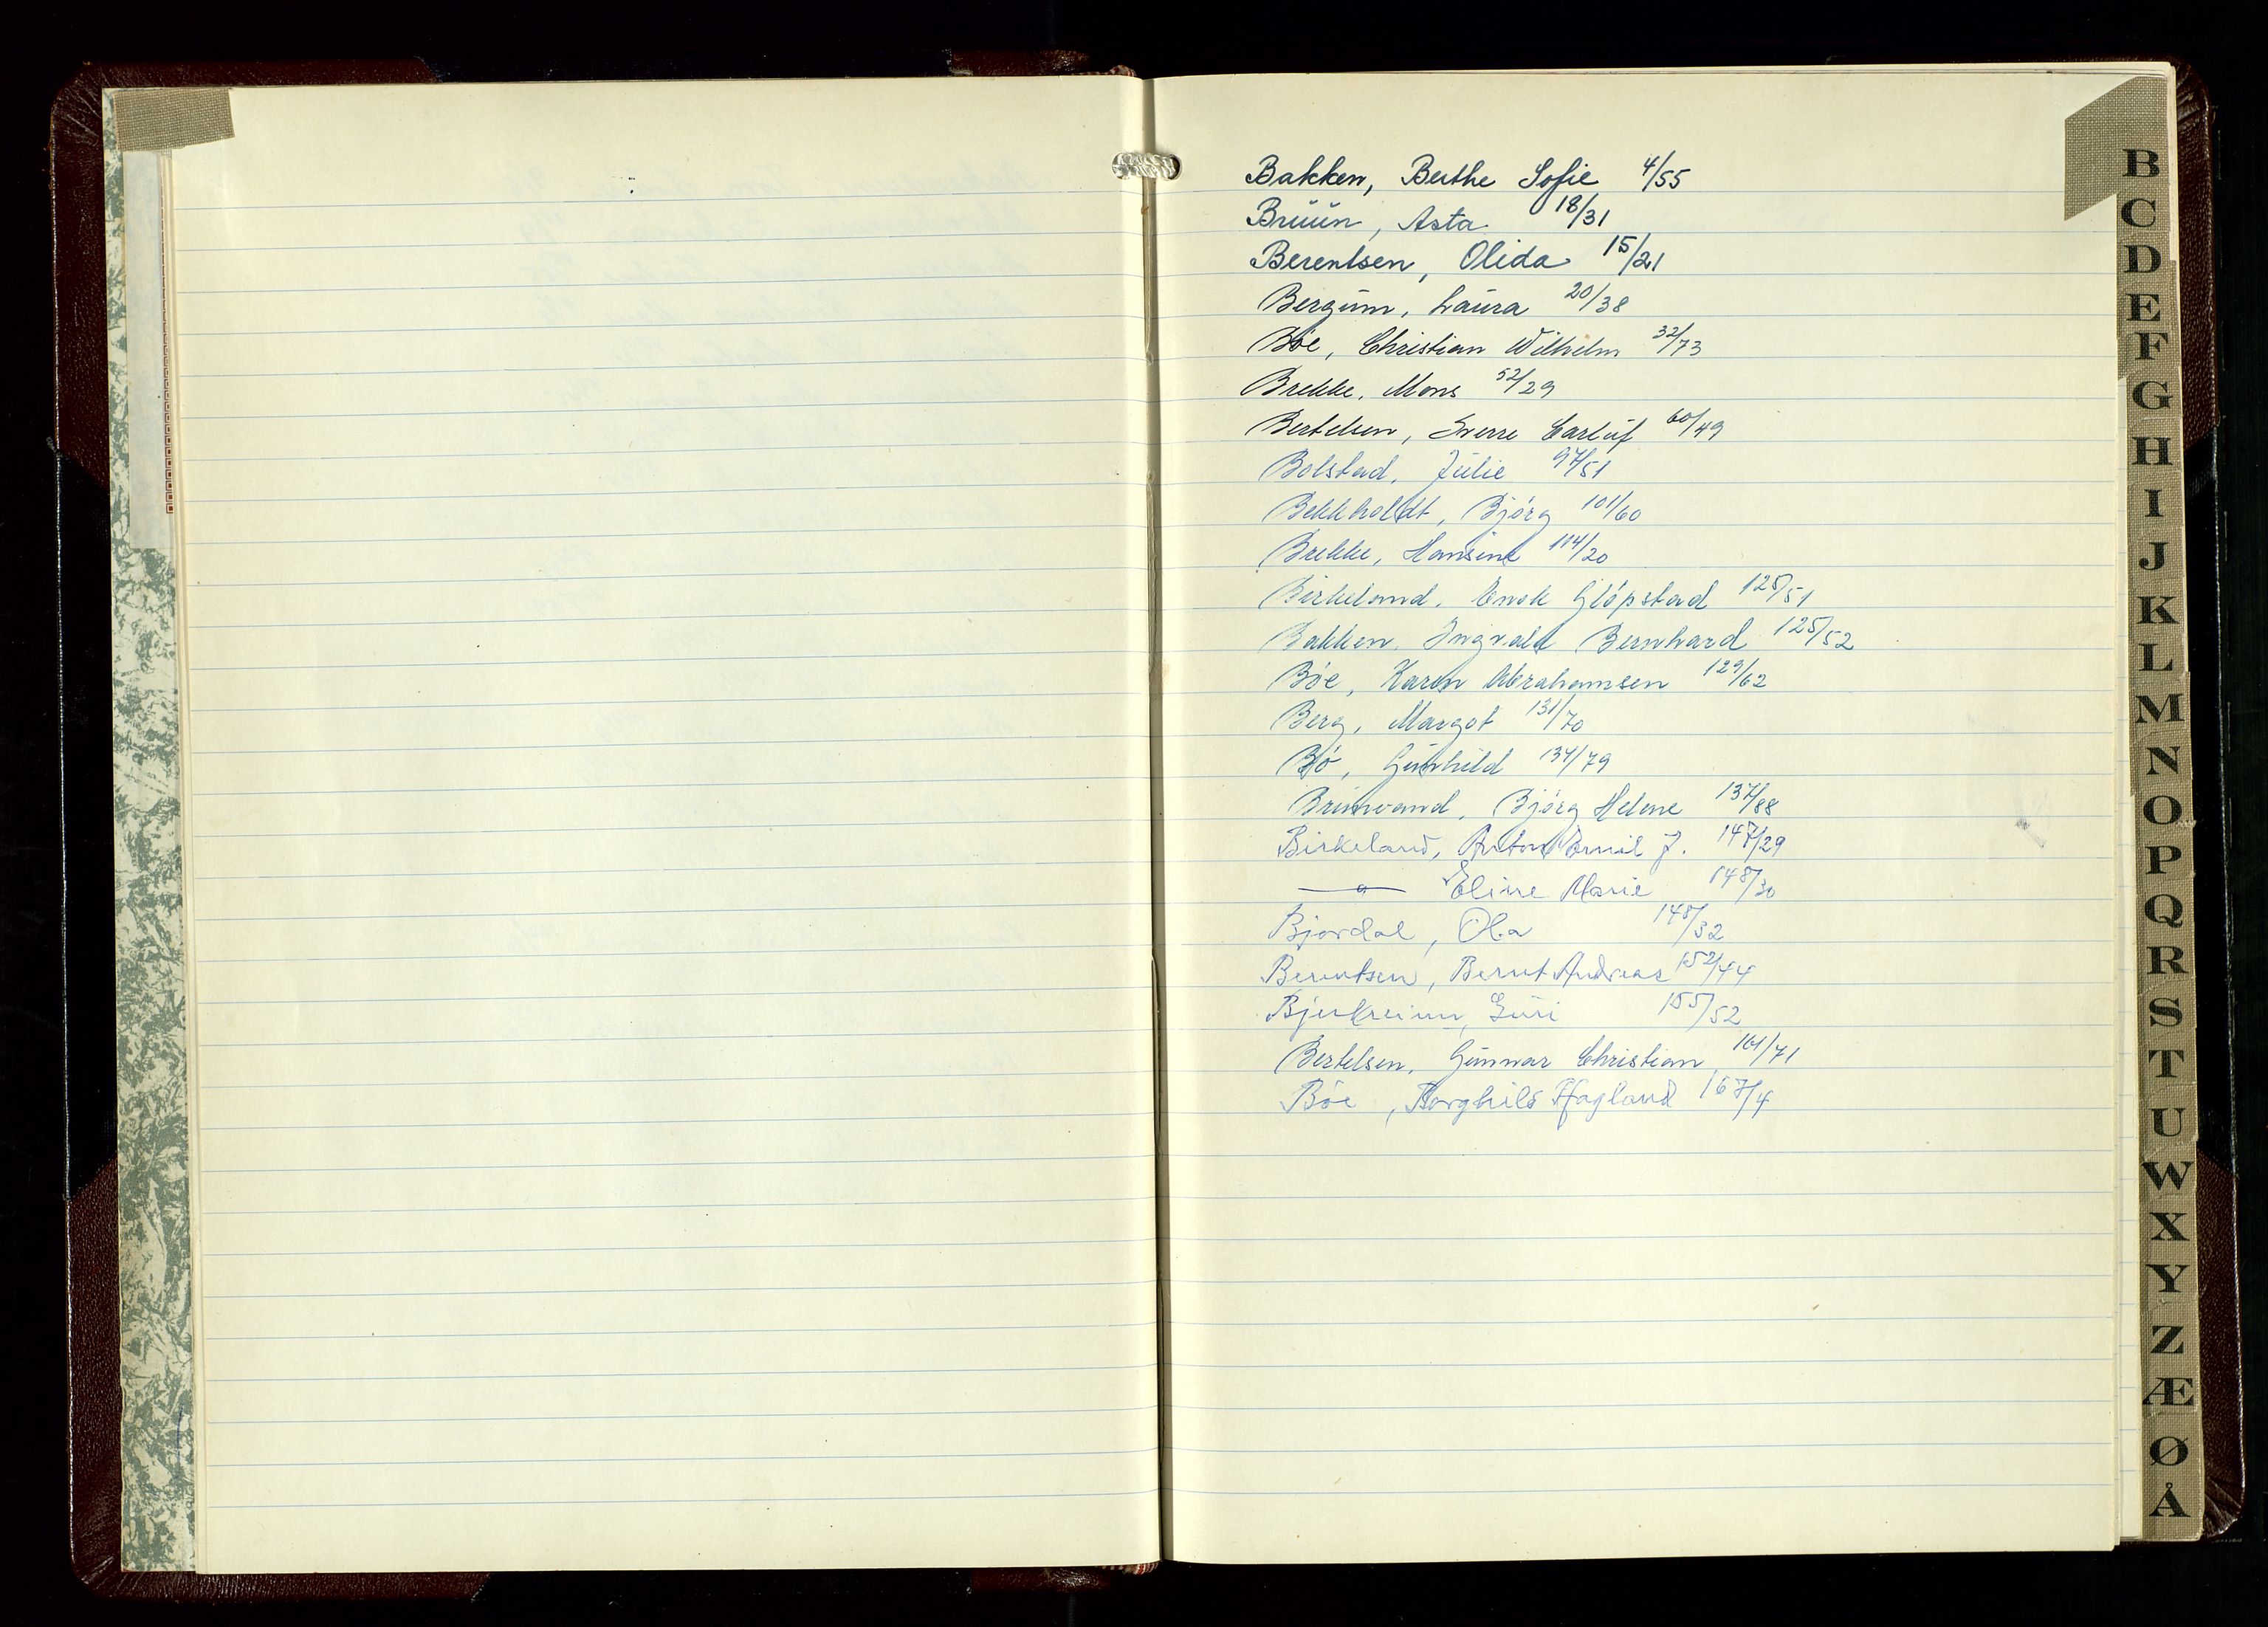 Bakken, Berthe Sofie 4/55
Bruun, Asta 18/31
Berentsen, Olida 15/21
Bergum, Laura 20/38
Bøe, Christian Wilhelm 32/73
Brekke, Mons 52/29
Bertelsen, Sverre Carluf 60/49
Bolstad, Julie 97/51
Bekkholdt, Bjørg 101/60
Brekke, Hansine 114/20
Birkeland, Enok Gløpstad 125/51
Bakken, Ingvald Bernhard 125/52
Bøe, Karen Abrahamsen 129/62
Berg, Margot 131/70
Bø, Gunhild 134/79
Brinvand, Bjørg Helene 137/88
Birkeland, Anton Emil J. 147/29
—"— Eline Marie 148/30
Bjordal, Ola 148/32
Berentsen, Bernt Andreas 152/44
Bjerkreim, Guri 155/52
Bertelsen, Gunnar Christian 161/71
Bøe, Borghild Fagland 167/4
B
C
D
E
F
G
H
I
J
K
L
M
N
O
P
Q
R
S
T
U
W
X
Y
Z
Æ
Ø
Å